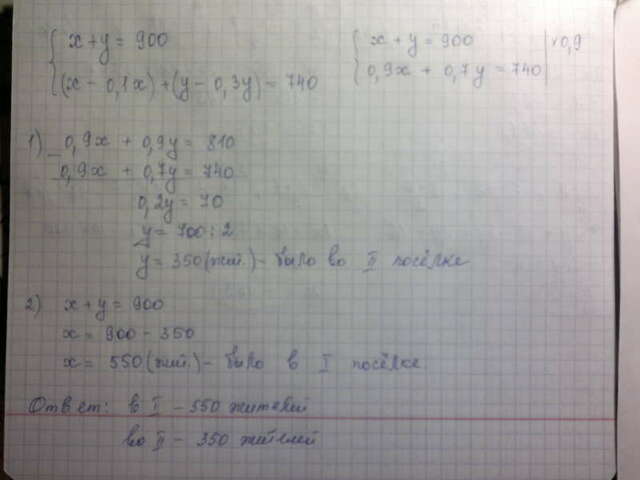 x + y = 900
(x - 0,1x) + (y - 0,3y) = 740
x + y = 900 | ×0,9
0,9x + 0,7y = 740
1) _ 0,9x + 0,9y = 810
0,9x + 0,7y = 740
0,2y = 70
y = 700 : 2
y = 350 (жит.) - было во II посёлке
2) x + y = 900
x = 900 - 350
x = 550 (жит.) - было в I посёлке
Ответ: в I - 550 жителей
во II - 350 жителей